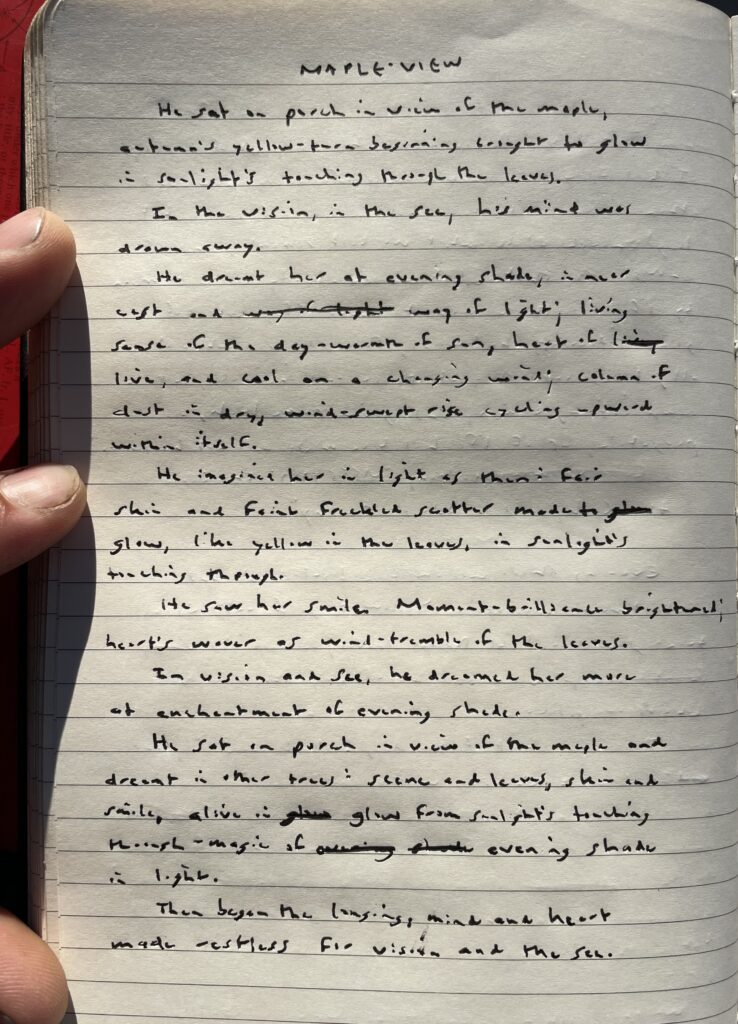 MAPLE-VIEW
He sat on porch in view of the maple,
autumn's yellow-turn beginning brought to glow
in sunlight's touching through the leaves.
In the vision, in the see, his mind was
drawn away.
He dreamt her at evening shade, in near
cast and way of light way of light; living
sense of the day-warmth of sun, heat of living
live, and cool on a changing wind; column of
dust in dry, wind-swept rise cycling upward
within itself.
He imagined her in light as then: fair
skin and faint freckled scatter made to glow
glow, like yellow in the leaves, in sunlight's
touching through.
He saw her smile. Moment-brilliance brightened;
heart's waver as wind-tremble of the leaves.
In vision and see, he dreamed her more
at enchantment of evening shade.
He sat on porch in view of the maple and
dreamt in other trees: scene and leaves, skin and
smile, alive in glow glow from sunlight's touching
through-magic of evening shade evening shade
in light.
Then began the longing, mind and heart
made restless for vision and the see.